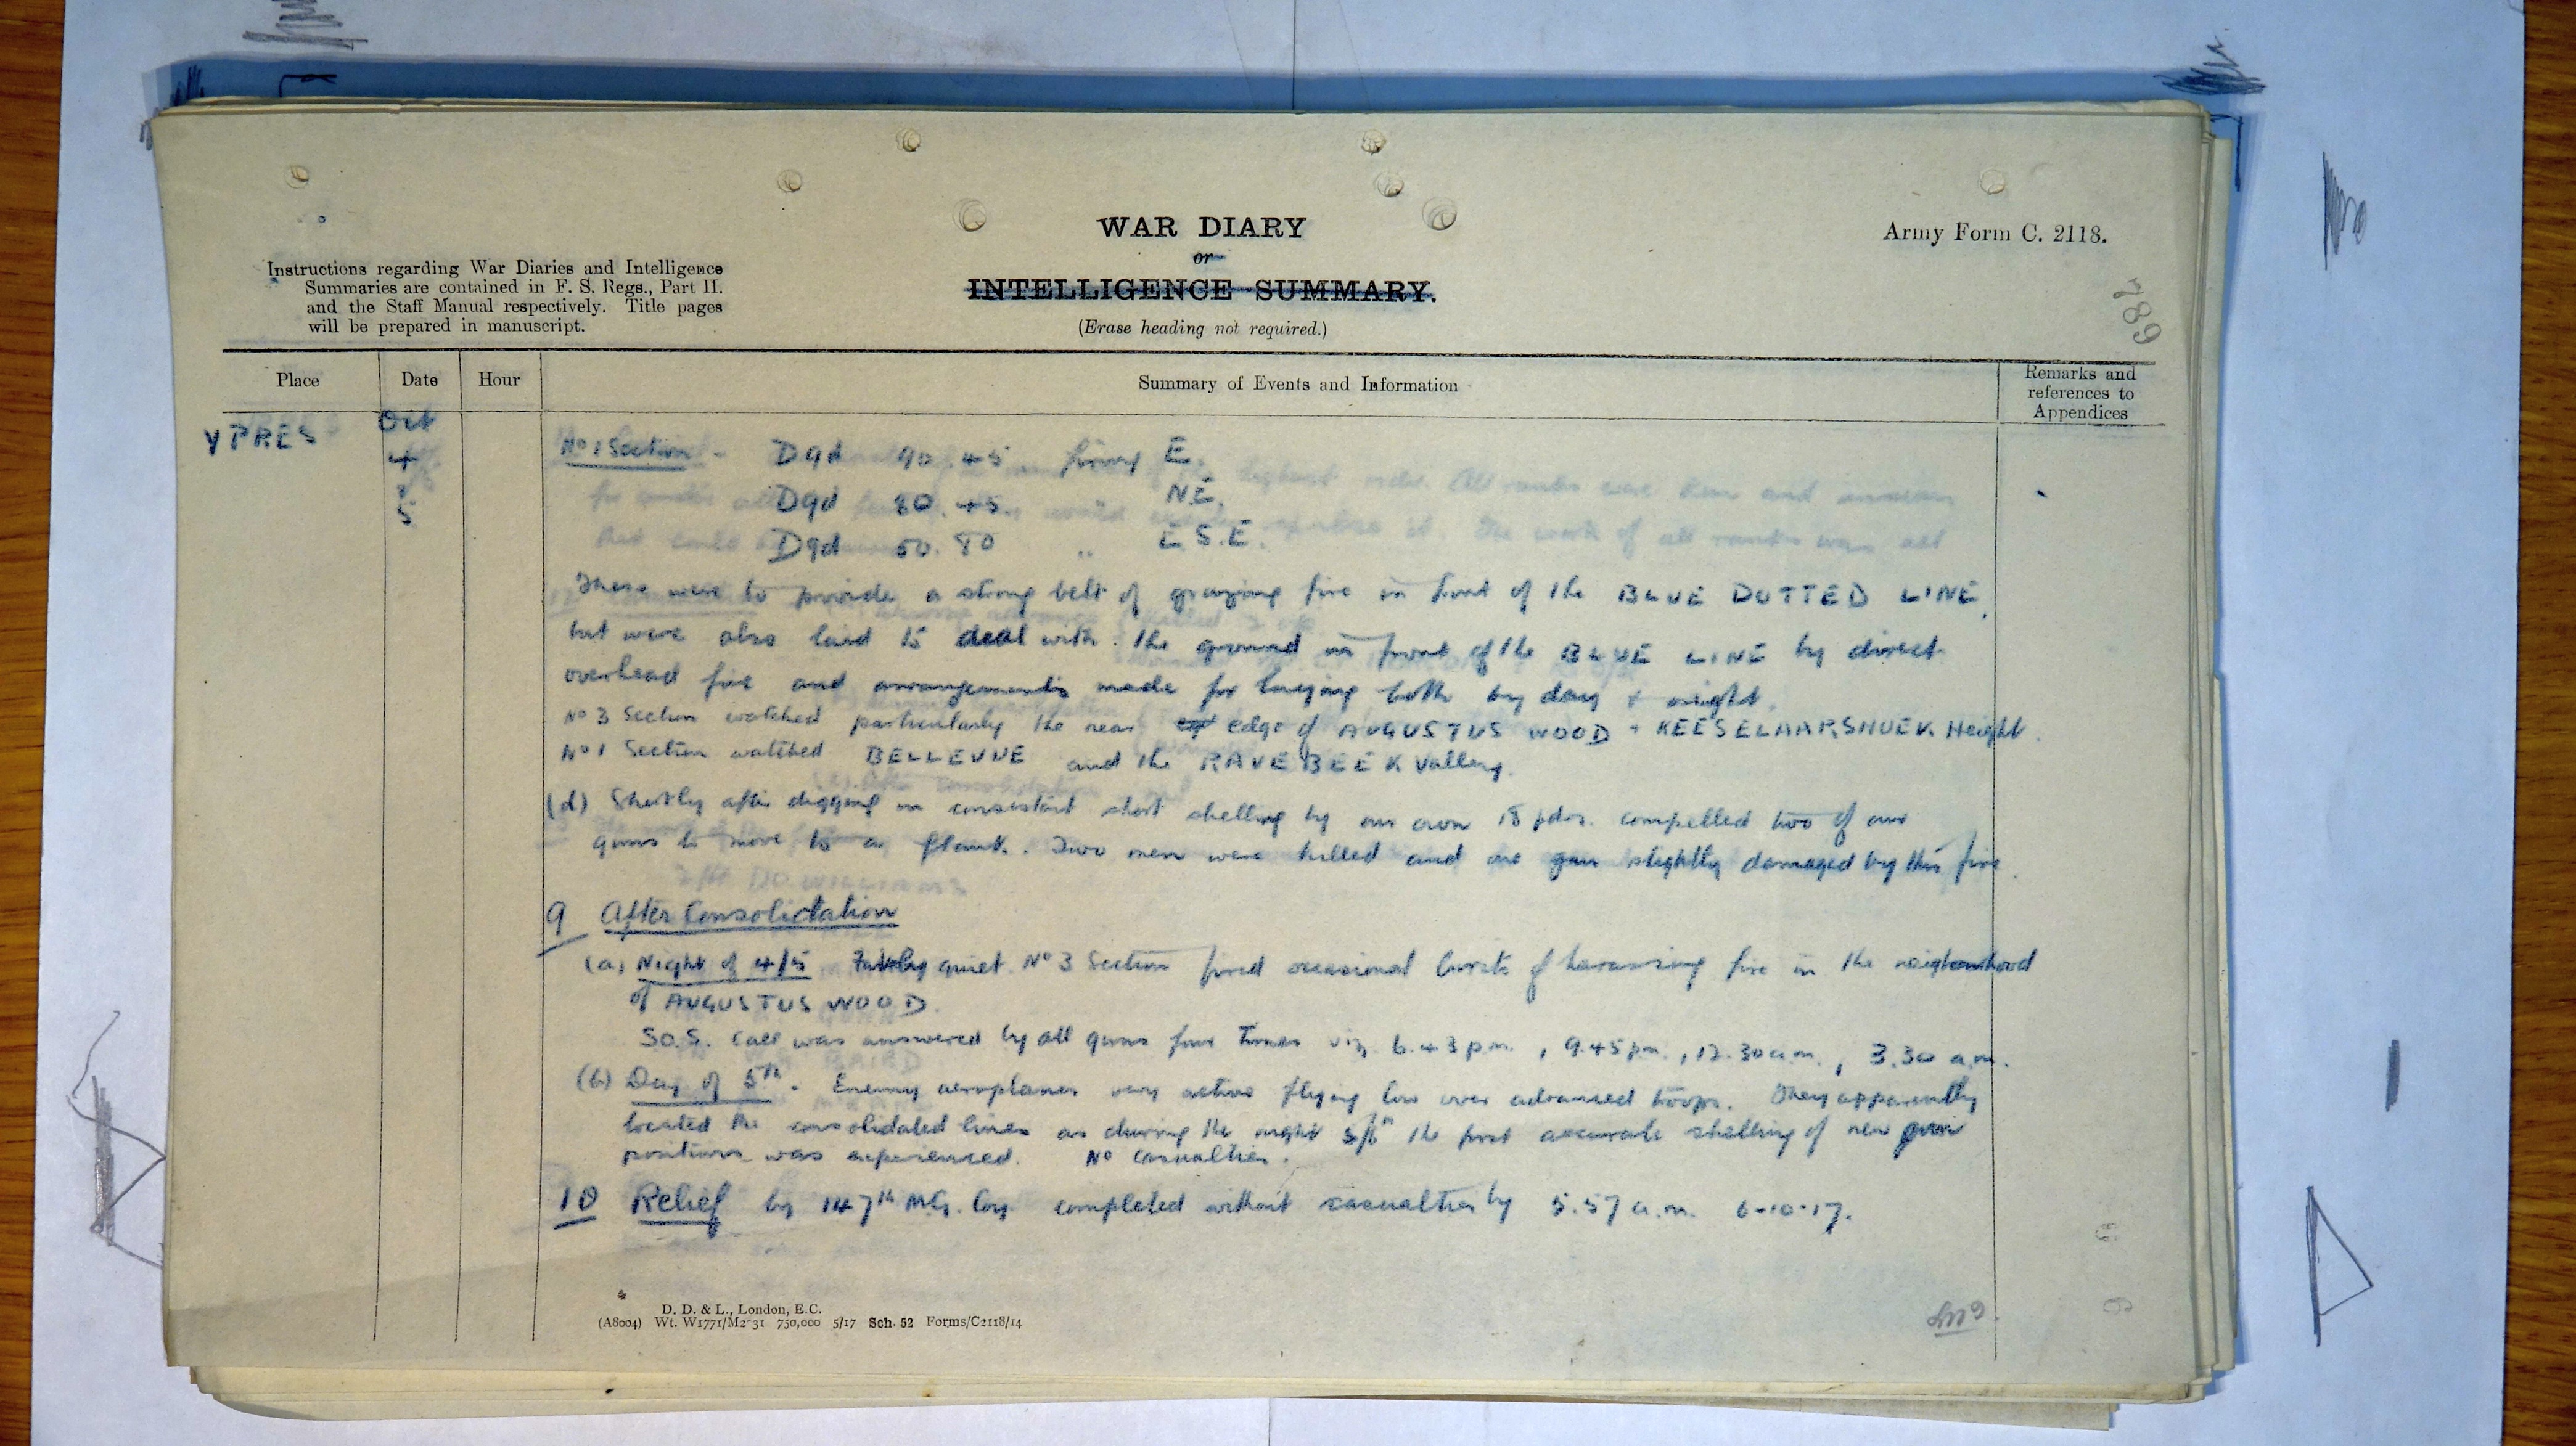 WAR DIARY
or
INTELLIGENCE SUMMARY.
(Erase heading not required.)
Army Form C. 2118.
Instructions regarding War Diaries and Intelligence
Summaries are contained in F. S. Regs., Part II.
and the Staff Manual respectively. Title pages
will be prepared in manuscript.
789
Place
Date
Hour
Summary of Events and Information
Remarks and
references to
Appendices
YPRES
Oct
4
5
No 1 Section - D9d 90.45 firing E.
D9d 80.45 " NE.
D9d 50.80 " E.S.E.
These were to provide a strong belt of grazing fire in front of the BLUE DOTTED LINE,
but were also laid to deal with the ground in front of the BLUE LINE by direct
overhead fire and arrangements made for laying both by day & night.
No 3 Section watched particularly the near edge of AUGUSTUS WOOD + KEESELAARSHUEK Height.
No 1 Section watched BELLEVUE and the RAVEBEEK Valley.
(d) Shortly after digging in consistent short shelling by our own 18 pdrs. compelled two of our
guns to move to a flank. Two men were killed and one gun slightly damaged by this fire.
9 After Consolidation
(a) Night of 4/5 Fairly quiet. No 3 Section fired occasional bursts of harassing fire in the neighbourhood
of AUGUSTUS WOOD.
S.O.S. call was answered by all guns four times viz 6.43 pm., 9.45 pm., 12.30 a.m., 3.30 a.m.
(b) Day of 5th. Enemy aeroplanes very active flying low over advanced troops. They apparently
located the consolidated lines as during the night 5/6th the first accurate shelling of new gun
positions was experienced. No casualties.
10 Relief by 147th M.G. Coy completed without casualties by 5.57 a.m. 6-10-17.
D. D. & L., London, E.C.
(A8004) Wt. W1771/M2-31 750,000 5/17 Sch. 52 Forms/C2118/14